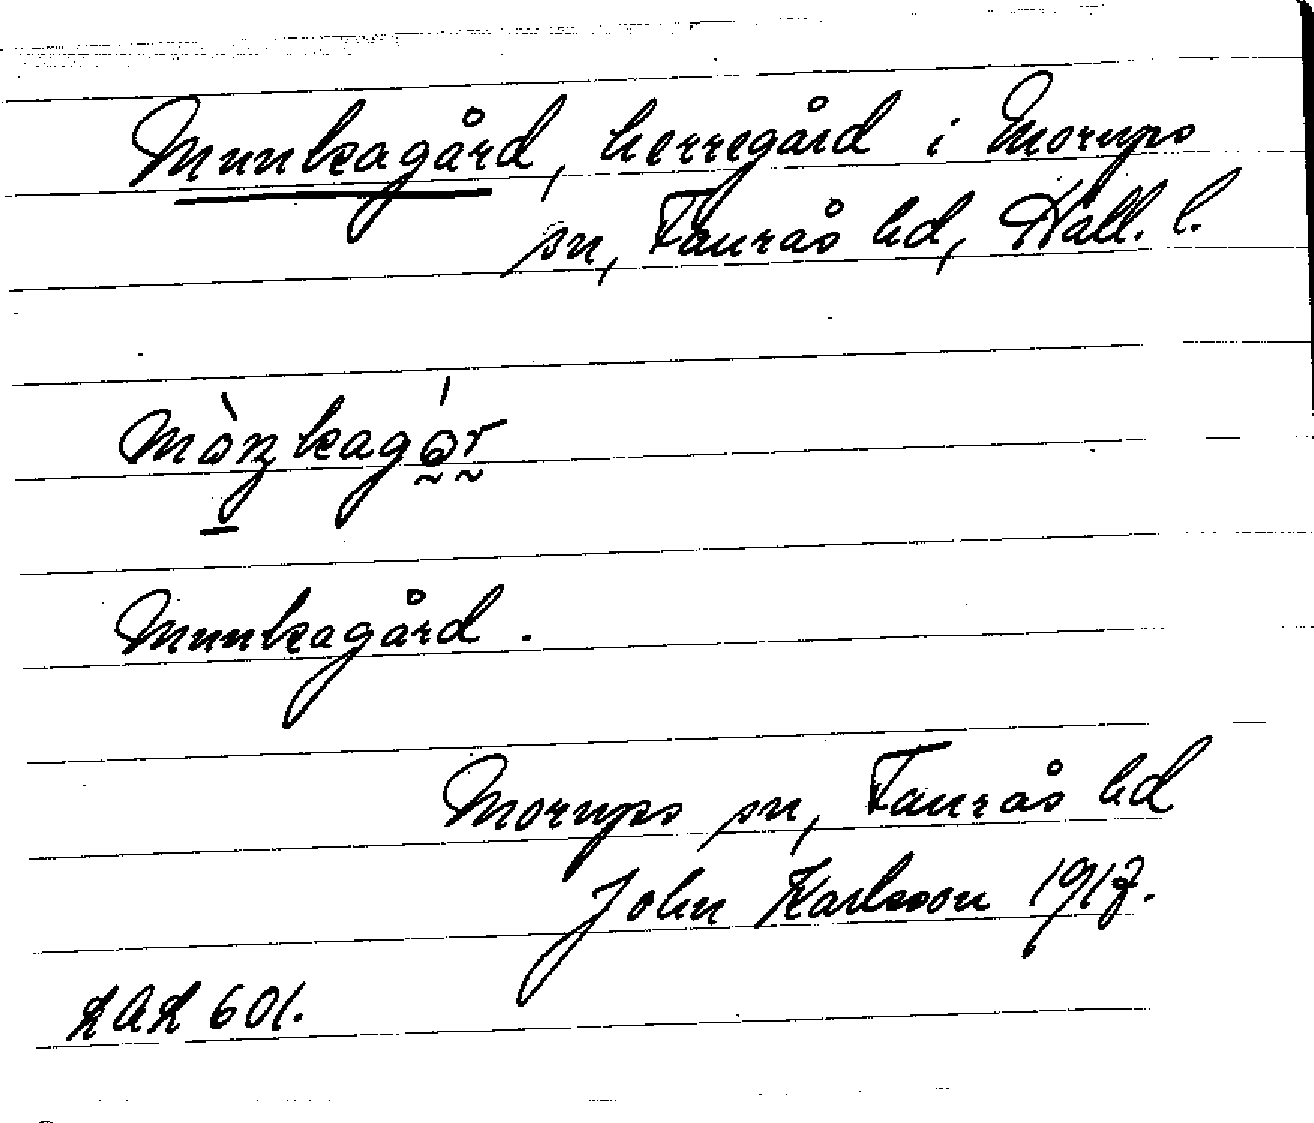 Munkagård, herregård i Morups
sn, Faurås hd, Hall. l.
mòŋkagǻr
Munkagård.
Morups sn, Faurås hd
John Karlsson 1917.